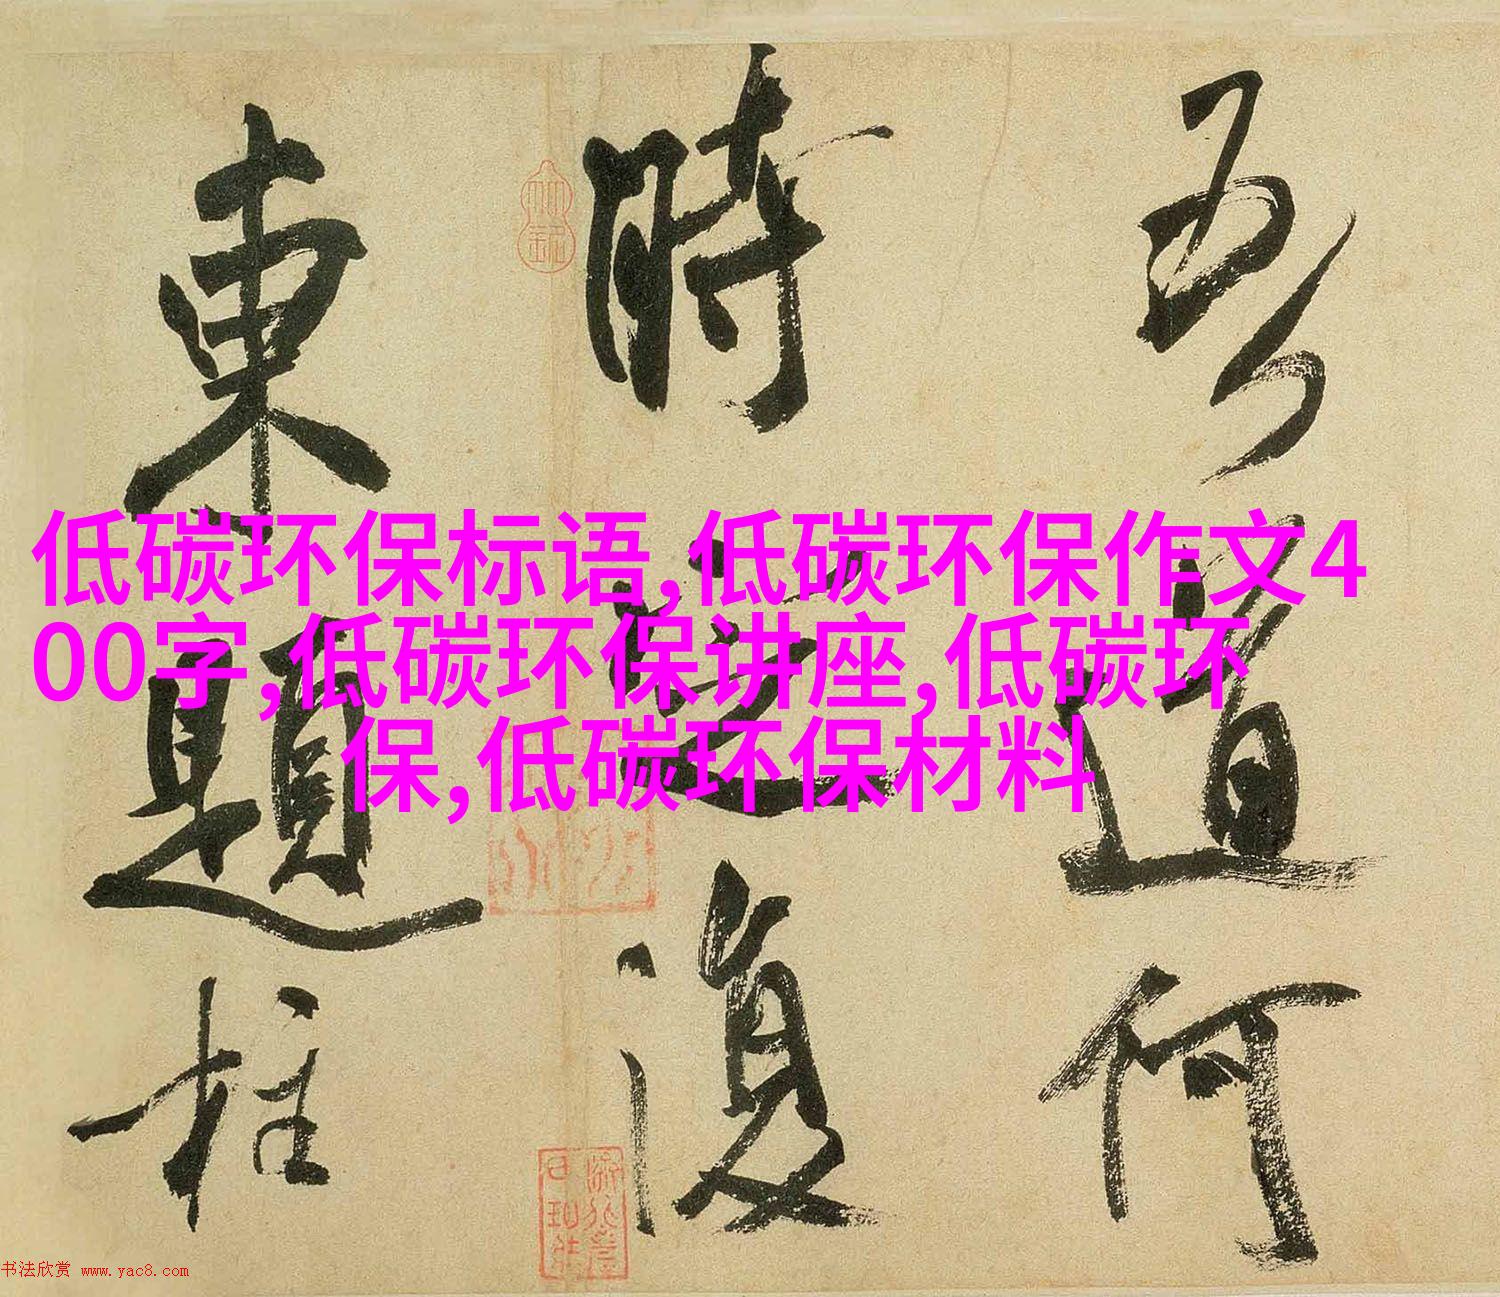 吾道何
時定復
東題柱
低碳环保标语,低碳环保作文4
00字,低碳环保讲座,低碳环
保,低碳环保材料
书法欣赏 www.yac8.com